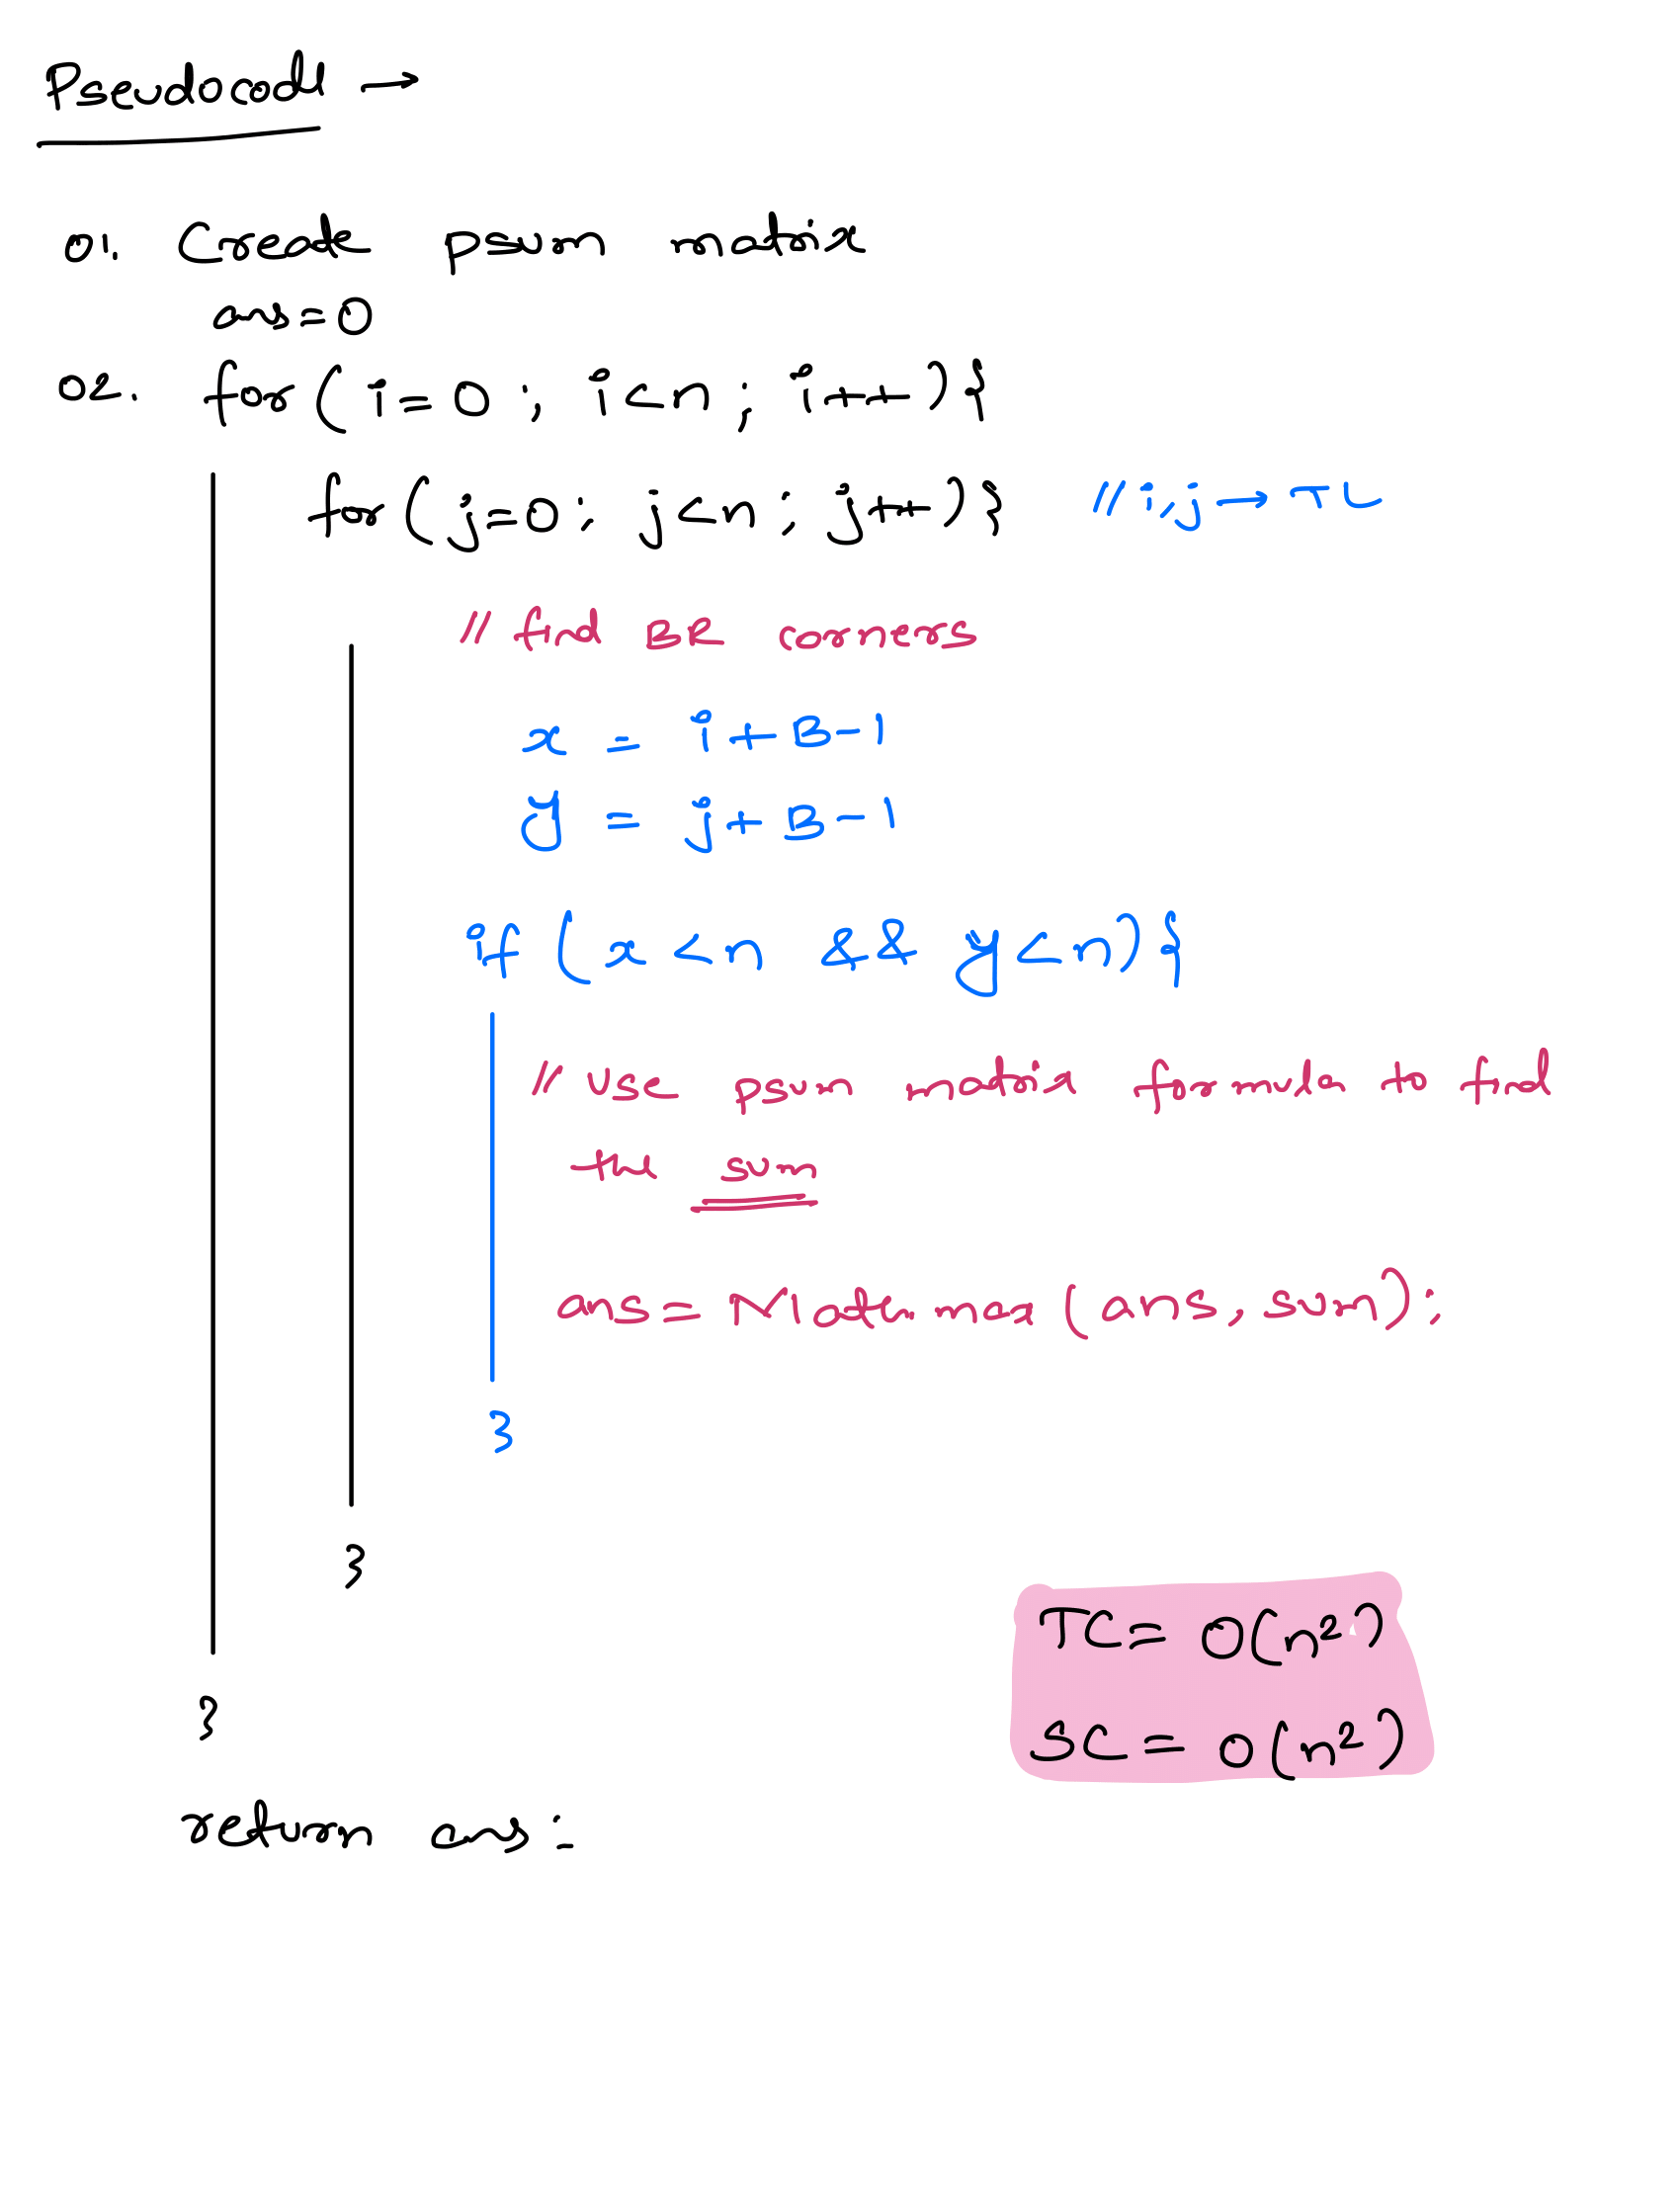 Pseudocode →
01. Create psum matrix
ans=0
02. for(i=0; i<n; i++){
for(j=0; j<n; j++){ // i,j → TL
// find BR corners
x = i+B-1
y = j+B-1
if (x<n && y<n){
// use psum matrix formula to find
the sum
ans = Math.max(ans, sum);
}
}
}
TC = O(n²)
SC = O(n²)
return ans;